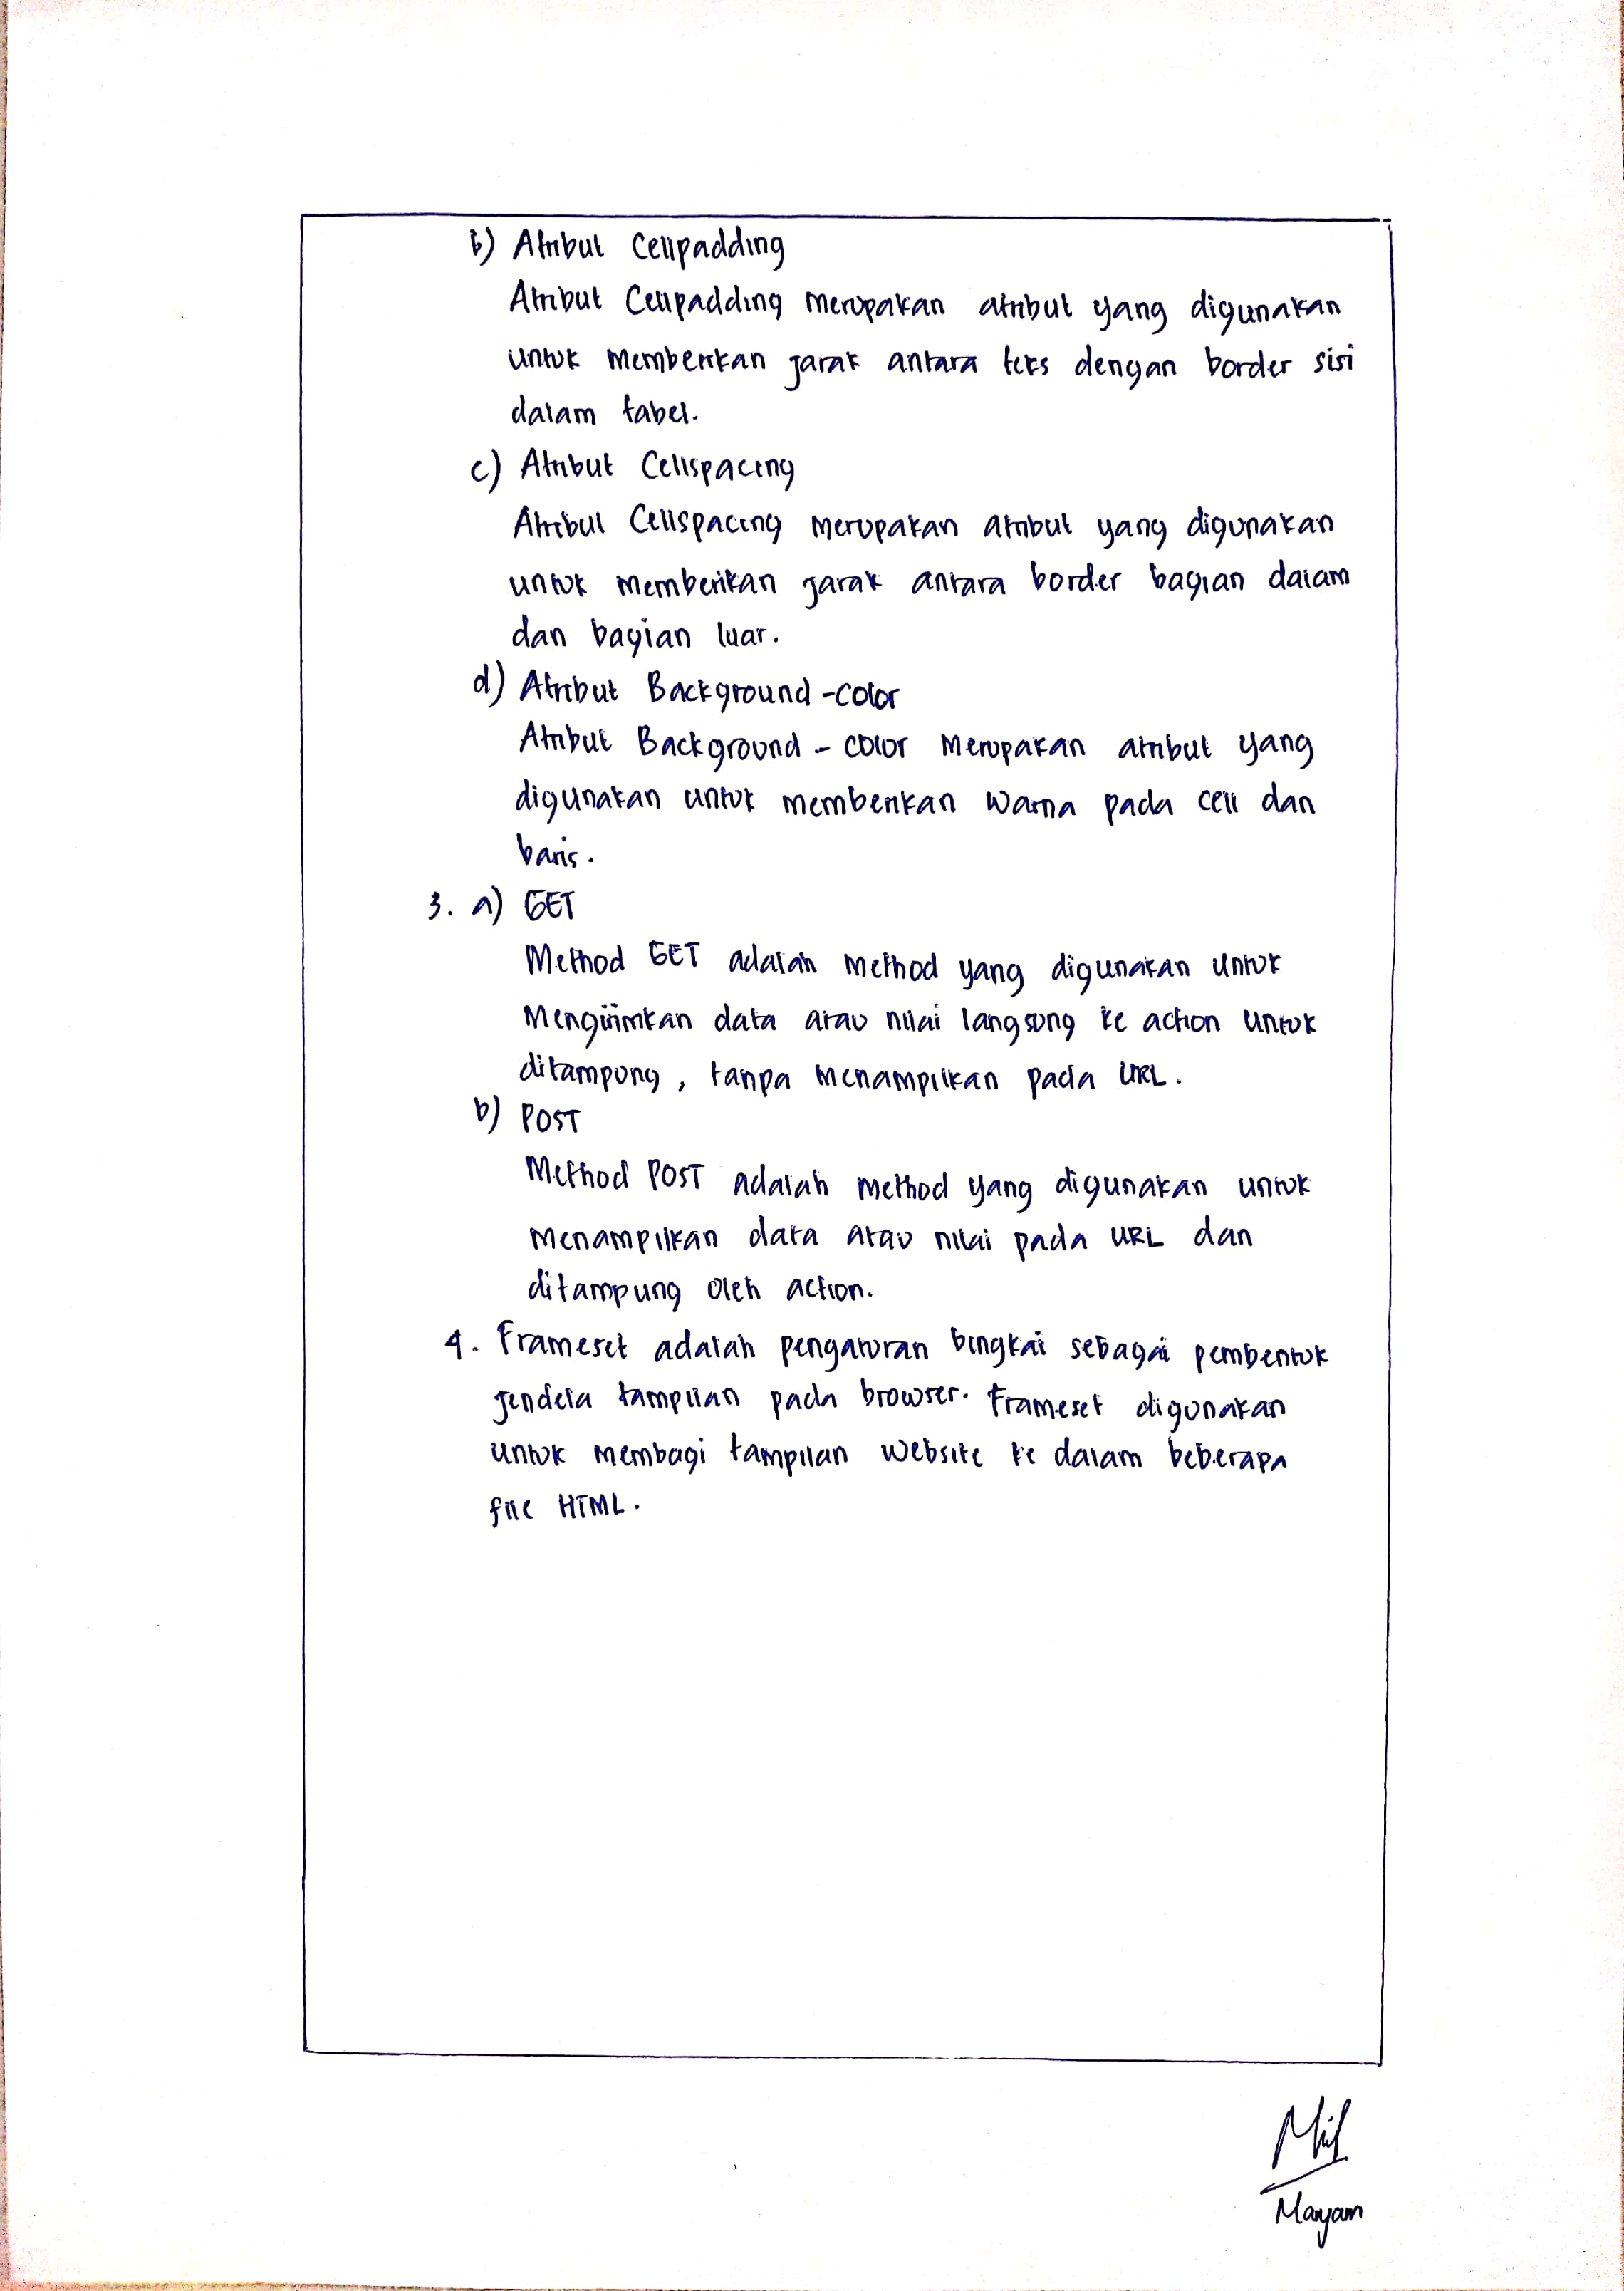 b) Atribut Cellpadding
Atribut Cellpadding merupakan atribut yang digunakan
untuk memberikan jarak antara teks dengan border sisi
dalam tabel.
c) Atribut Cellspacing
Atribut Cellspacing merupakan atribut yang digunakan
untuk memberikan jarak antara border bagian dalam
dan bagian luar.
d) Atribut Background-color
Atribut Background-color merupakan atribut yang
digunakan untuk memberikan warna pada cell dan
baris.
3. a) GET
Method GET adalah method yang digunakan untuk
Mengirimkan data atau nilai langsung ke action untuk
ditampung, tanpa menampilkan pada URL.
b) POST
Method POST adalah method yang digunakan untuk
menampilkan data atau nilai pada URL dan
ditampung oleh action.
4. Frameset adalah pengaturan bingkai sebagai pembentuk
jendela tampilan pada browser. Frameset digunakan
untuk membagi tampilan website ke dalam beberapa
file HTML.
Maryam